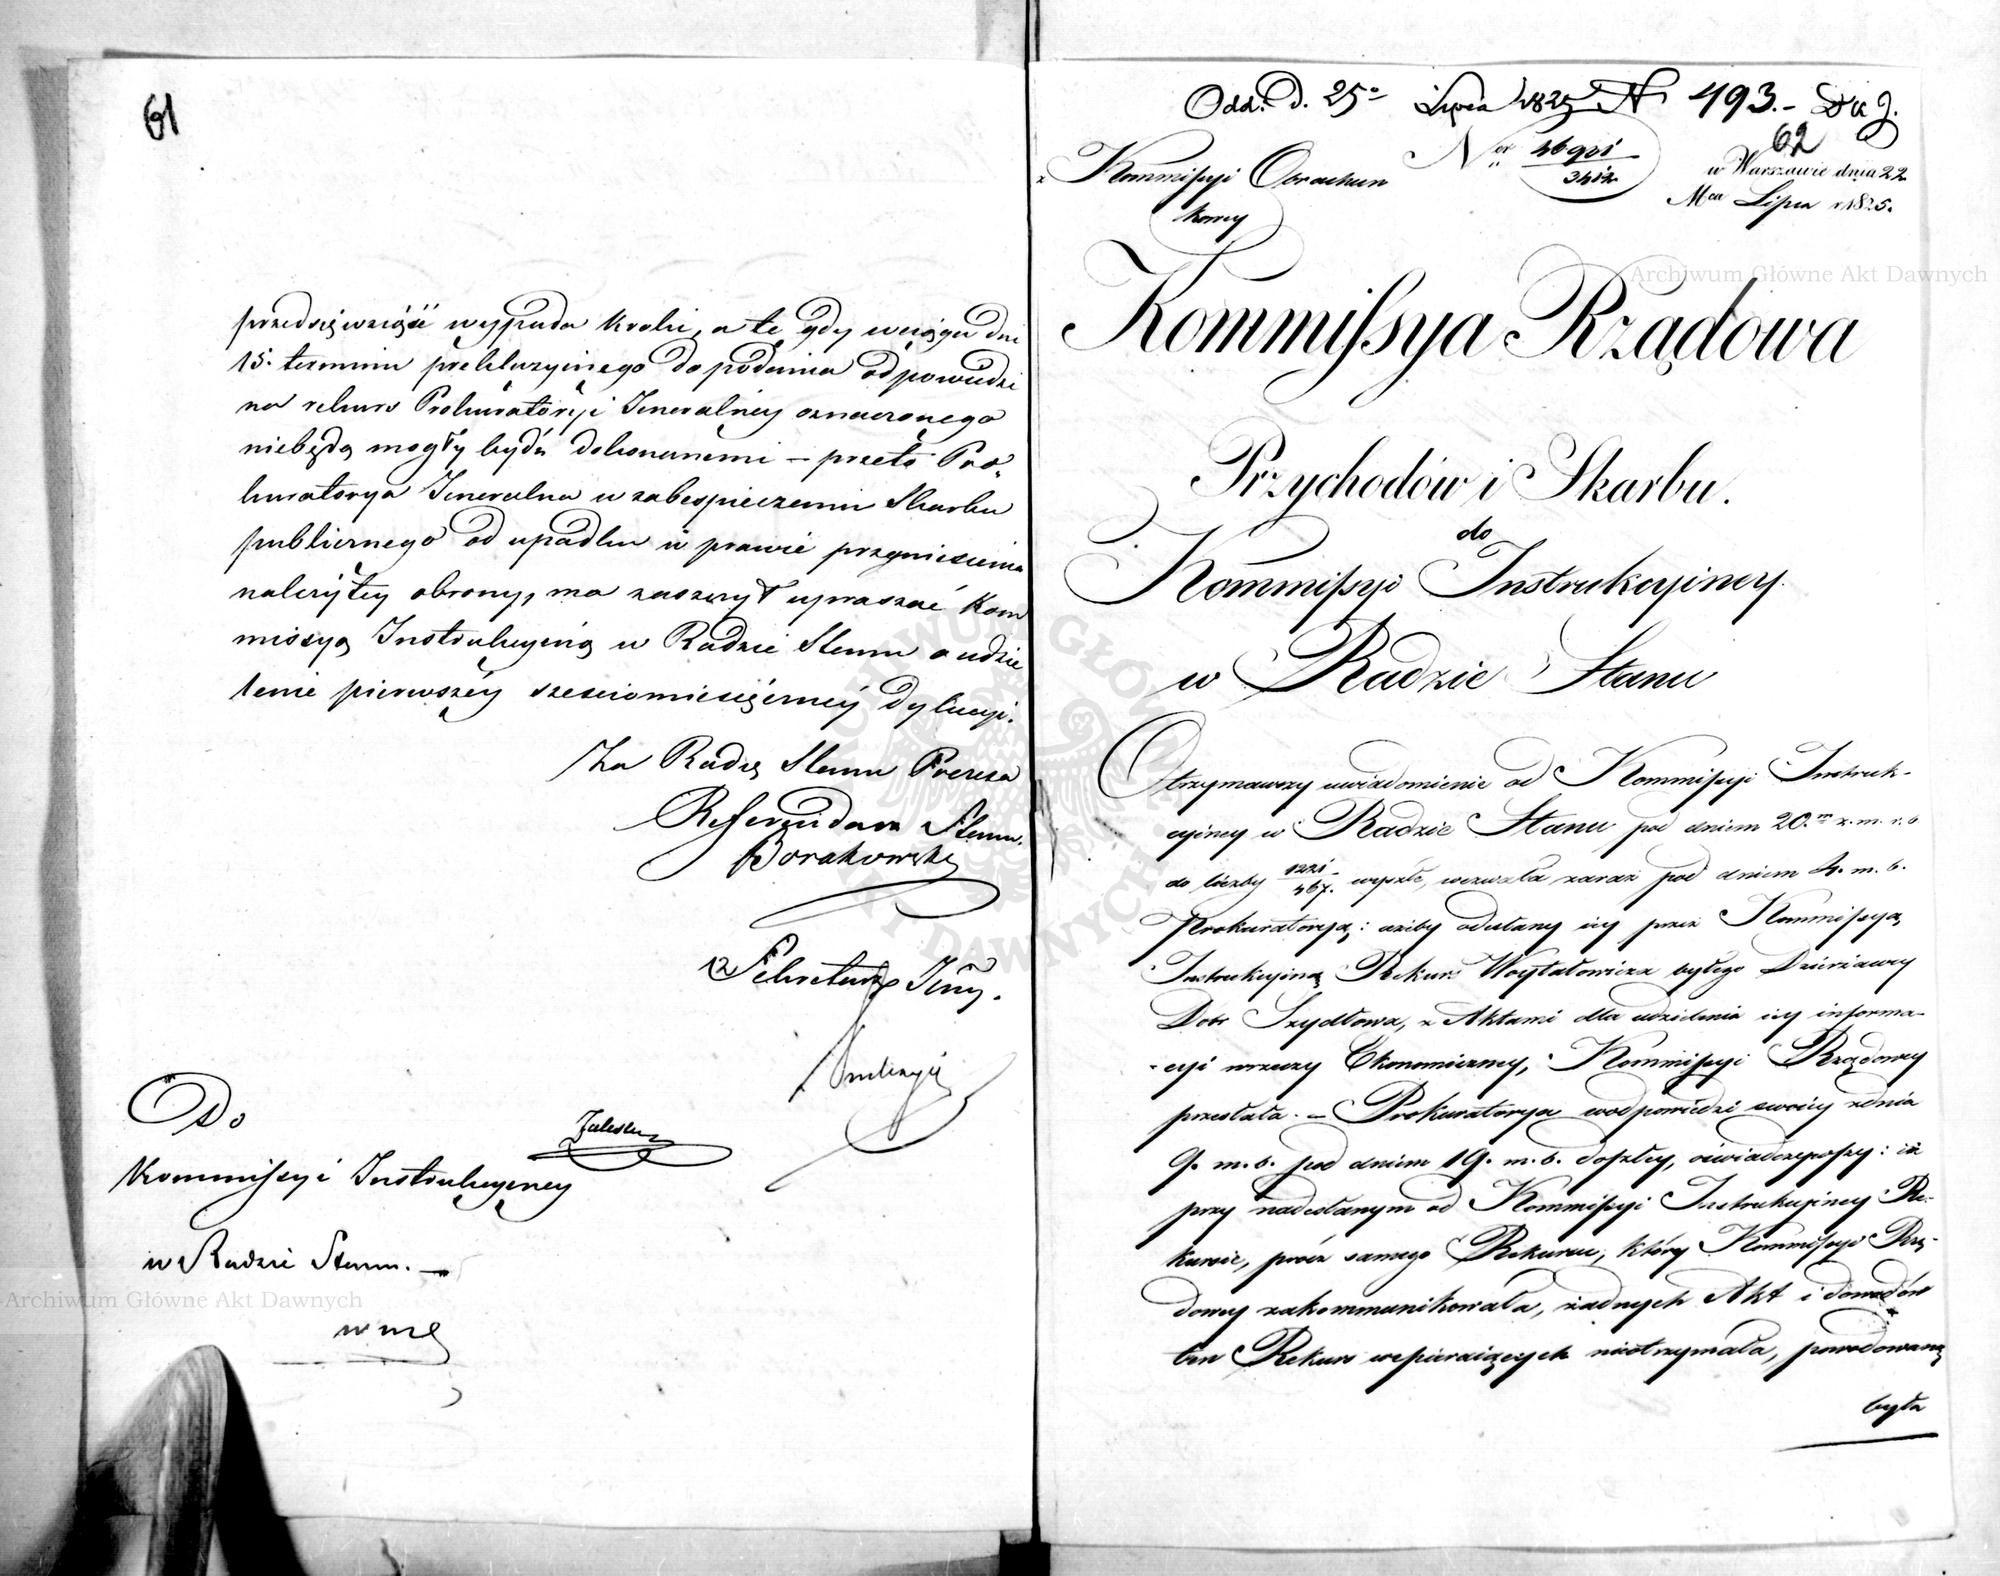 61
przedsięwziąść wypada kroki, a te gdy wciągu dni
15. terminu prekluzyinego do podania odpowiedzi
na rekurs Prokuratoryi Jeneralnéy oznaczonego
niebędą mogły bydź dokonanemi – przeto Pro-
kuratorya Jeneralna w zabespieczeniu Skarbu
publicznego od upadku w prawie przyniesienia
należytey obrony, ma zaszczyt upraszać Kom
missyą Instrukcyiną w Radzie Stanu o udzie
lenie pierwszéy sześciomiesięcznéy dylacyi.
Za Radzę Stanu Prezesa
Referendarz Stanu
Borakowski
Sekretarz Jlny.
Do
Kommissyi Instrukcyjney
w Radzie Stanu. —
Odd. d. 25° Lipca 1825 N 493.-
62
z Kommissyi Obrachun
kowey
w Warszawie dnia 22
Mca Lipca r 1825.
Kommissya Rządowa
Przychodów i Skarbu.
do
Kommissyi Instrukcyiney
w Radzie Stanu
Otrzymawszy uwiadomienie od Kommissyi Instruk-
cyiney w Radzie Stanu pod dniem 20.m z. m. r. b.
do liczby 1221/467. wyszłe, wezwała zaraz pod dniem 4. m. b.
Prokuratoryą: ażiby odesłany iey przez Kommissyą
Instrukcyiną Rekurs Woytałowicza byłego Dzierżawcy
Dobr Szydłowa, z Aktami dla udzielenia iey informa-
-cyi wrzeczy Ekonomiczney, Kommissyi Rządowey
przesłała. – Prokuratorya wodpowiedzi swoiey zdnia
9. m. b. pod dniem 19. m. b. doszłey, oświadczywszy: iż
przy nadesłanym od Kommissyi Instrukcyiney Re-
kursie, prócz samego Rekursu, który Kommissyi Rzą-
dowey zakommunikowała, żadnych Akt i dowodów
ten Rekurs wspieraiących nieotrzymała, powodowaną
była
Archiwum Główne Akt Dawnych
Archiwum Główne Akt Dawnych